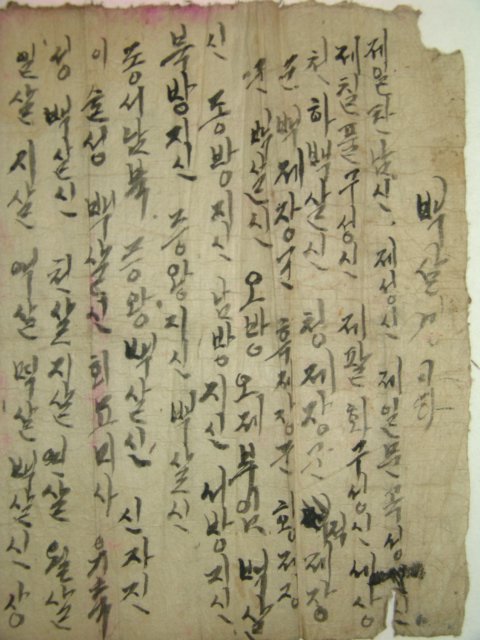 백살경이라
제일탄남신 제성신 제일문무성신
제칠문무성신 제팔화무성신 세상
천하백살신 청제장군 적제장
군 백제장군 흑제장군 황제장
군 백살신 오방오제부임 백살
신 동방지신 남방지신 서방지신
북방지신 중앙지신 백살신
동서남북 중왕 백살신 신자진
이술성 백살신 회묘미사 유축
성 백살신 천살지살 연살 월살
일살 지살 역살 백살신 상